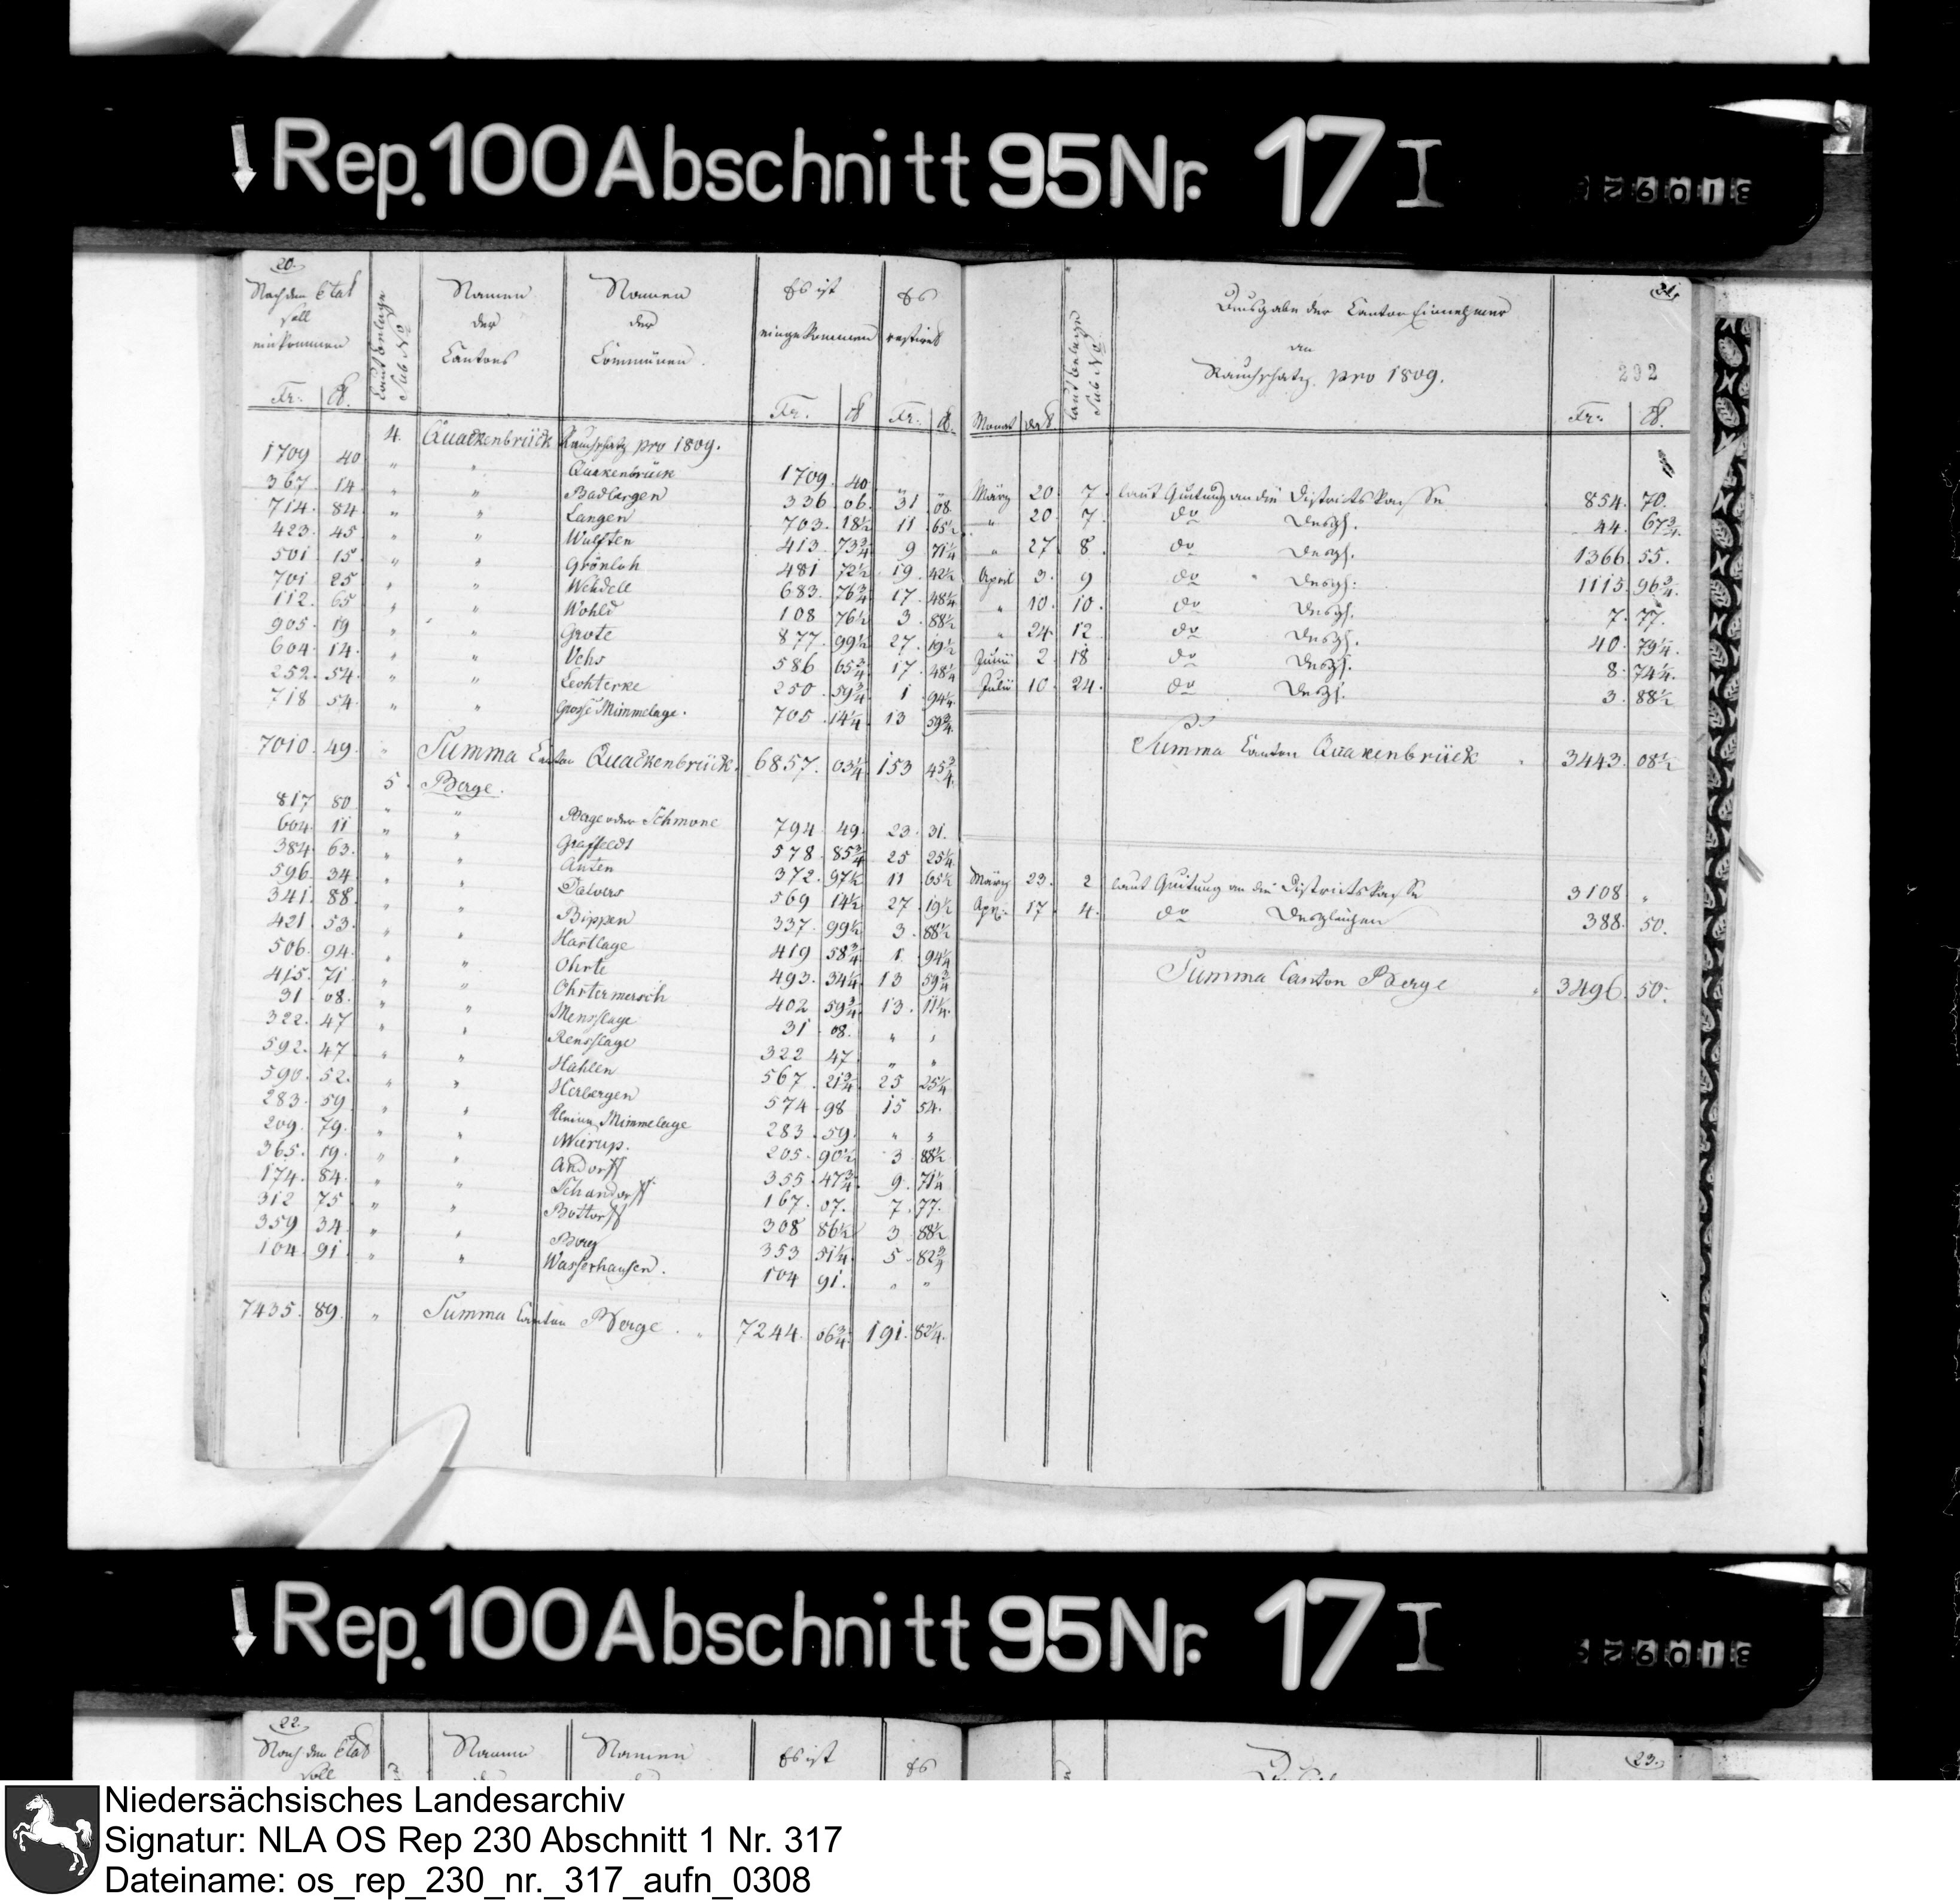 Rep. 100 Abschnitt 95 Nr. 17 I
20.
Nach dem Etat
soll
einkommen
Fr. Ct.
laut Anlage
sub No
Namen
der
Cantons
Namen
der
Communen.
Es ist
eingekommen
Fr. Ct
Es
restirt
Fr. Ct.
4. Quackenbrück Rauchschatz pro 1809.
1709 40 " " Quakenbrück 1709. 40 " "
367. 14. " " Badbergen 336 06. 31. 08.
714. 84. " " Langen 703. 18½ 11. 65½
423. 45. " " Wulften 413. 73¾ 9 71¼
501 15. " " Grönloh 481 72½ 19. 42½
701 25 " " Wehdell 683. 76¾ 17. 48¼
112. 65 " " Wohld 108 76½ 3. 88½
905. 19 " " Grote 877. 99½ 27. 19½
604. 14. " " Vehs 586 65¾ 17. 48¼
252. 54. " " Lechterke 250. 59¾ 1. 94¼
718 54. " " Grosse Mimmelage. 705. 14¼ 13 59¾
7010. 49. " Summa Canton Quackenbrück. 6857. 03¼ 153 45¾
5. Berge.
817 80 " " Berge oder Schmone 794. 49. 23. 31.
604. 11 " " Graffeldt 578. 85¾ 25 25¼
384. 63. " " Anten 372. 97½ 11 65½
596. 34. " " Dalvers 569 14½ 27. 19½
341. 88. " " Bippen 337. 99½ 3. 88½
421. 53. " " Hartlage 419 58¾ 1. 94¼
506. 94. " " Ohrte 493. 34¼ 13 59¾
415. 71. " " Ohrtermersch 402 59¾ 13. 11¼
31. 08. " " Mensslage 31. 08. " "
322. 47 " " Rensslage 322 47 " "
592. 47 " " Hahlen 567. 21¾ 25 25¼
590. 52. " " Herbergen 574. 98 15 54.
283. 59 " " Kleine Mimmelage 283. 59. " "
209. 79. " " Wierup. 205. 90½ 3. 88½
365. 19. " " Andorff 355. 47¾ 9. 71¼
174. 84. " " Schandorff 167. 07. 7. 77.
312 75 " " Bottorff 308 86½ 3 88½
359 34. " " Borg 353 51¼ 5. 82¾
104. 91 " " Wasserhausen. 104 91. " "
7435. 89. " Summa Canton Berge. " 7244. 06¾ 191. 82¼.
21.
Ausgabe der Canton Einnehmer
an
Rauchschatz. pro 1809.
292
Monat
laut Belege
sub No
Fr. Ct.
März 20. 7. laut Quitung an die Districts Kasse 854. 70.
" 20. 7. do desgl. 44. 67¾
" 27. 8. do desgl. 1366. 55.
April 3. 9 do desgl. 1115. 96¾
" 10. 10. do desgl. 7. 77.
" 24. 12 do desgl. 40. 79¼.
Junii 2. 18 do desgl. 8. 74¼.
Julii 10. 24. do desgl. 3. 88½
Summa Canton Quakenbrück " 3443. 08½
März 23. 2 laut Quitung an die Districts Kasse 3108. "
Apri: 17. 4. do desgleichen 388. 50.
Summa Canton Berge " 3496. 50.
Rep. 100 Abschnitt 95 Nr. 17 I
22.
Nach dem Etat
soll
Namen
Namen
Es ist
Es
23.
Niedersächsisches Landesarchiv
Signatur: NLA OS Rep 230 Abschnitt 1 Nr. 317
Dateiname: os_rep_230_nr._317_aufn_0308